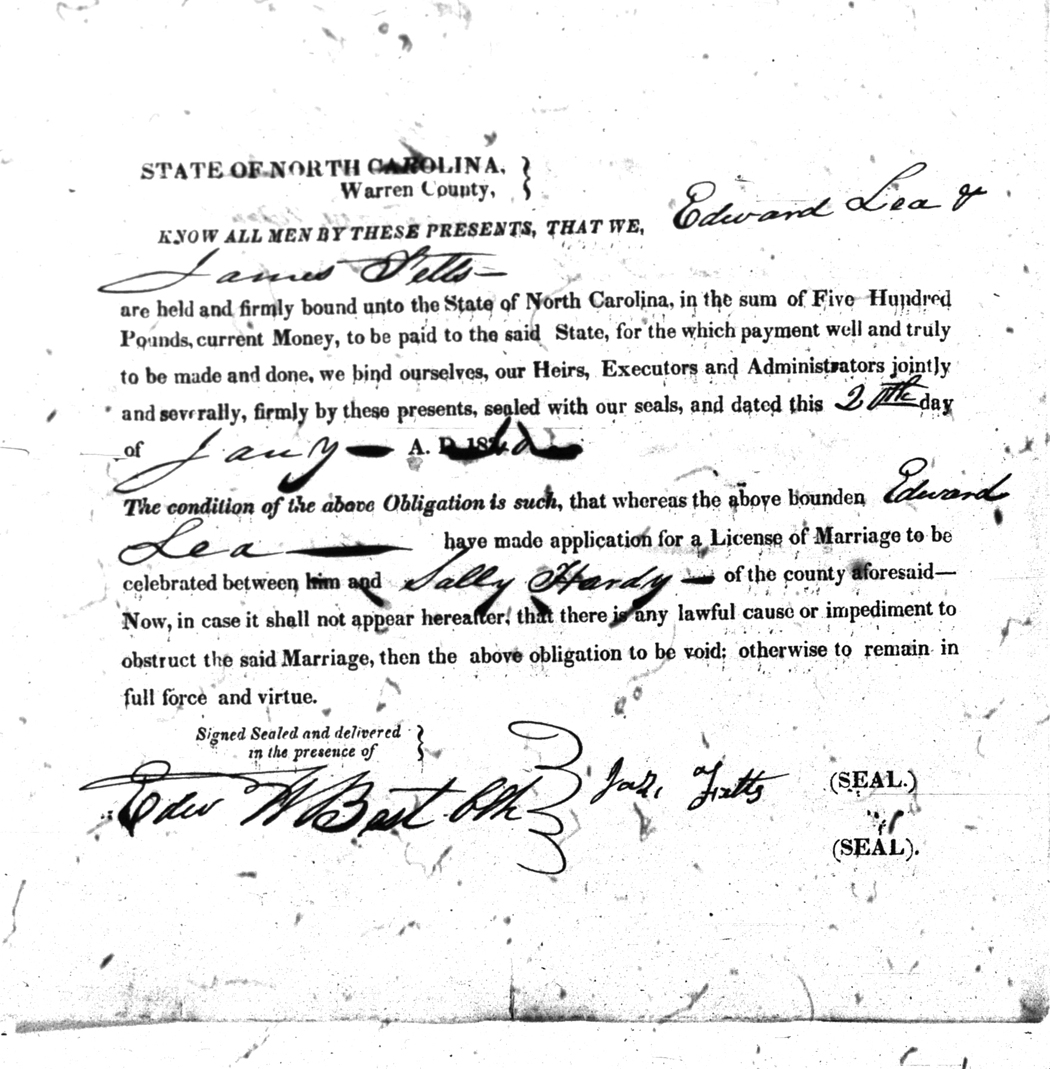 STATE OF NORTH CAROLINA,
Warren County,
KNOW ALL MEN BY THESE PRESENTS, THAT WE, Edward Lea &
James
are held and firmly bound unto the State of North Carolina, in the sum of Five Hundred
Pounds, current Money, to be paid to the said State, for the which payment well and truly
to be made and done, we bind ourselves, our Heirs, Executors and Administrators jointly
and severally, firmly by these presents, sealed with our seals, and dated this day
of Jany A. D. 18
The condition of the above Obligation is such, that whereas the above bounden Edward
Lea have made application for a License of Marriage to be
celebrated between him and Sally Hardy of the county aforesaid—
Now, in case it shall not appear hereafter, that there is any lawful cause or impediment to
obstruct the said Marriage, then the above obligation to be void; otherwise to remain in
full force and virtue.
Signed Sealed and delivered
in the presence of
Edw W Best Clk Fitts (SEAL.)
(SEAL).